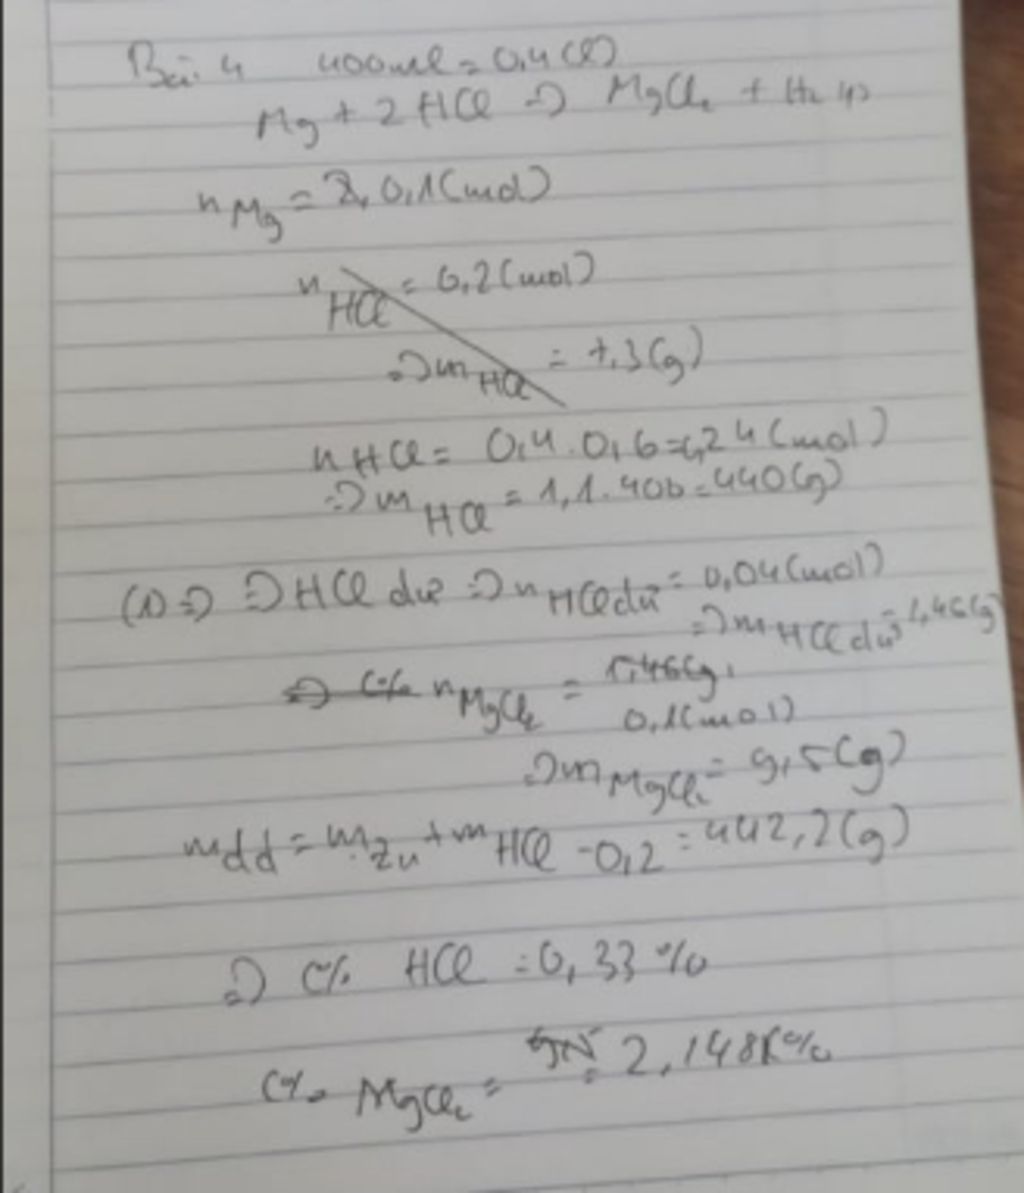 Bài 4 400ml = 0,4 (l)
Mg + 2HCl => MgCl₂ + H₂ (1)
nMg = 0,1 (mol)
nHCl = 0,2 (mol)
=> mHCl = 7,3 (g)
nHCl = 0,4 . 0,6 = 0,24 (mol)
=> mHCl = 1,1 . 400 = 440 (g)
(1) => => HCl dư => nHCl dư = 0,04 (mol)
=> mHCl dư = 1,46 (g)
=> C% nMgCl₂ = 1,46 (g)
0,1 (mol)
=> mMgCl₂ = 9,5 (g)
mdd = mZn + mHCl - 0,2 = 442,2 (g)
=> C% HCl = 0,33 %
C% MgCl₂ = 2,148%